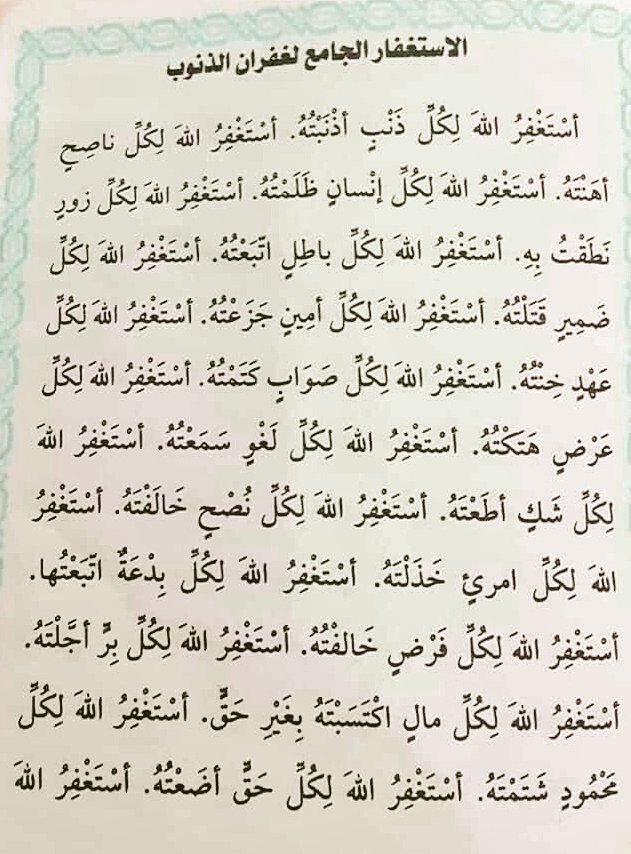 الاستغفار الجامع لغفران الذنوب
أسْتَغْفِرُ اللهَ لِكُلِّ ذَنْبٍ أذْنَبْتُهُ. أسْتَغْفِرُ اللهَ لِكُلِّ ناصِحٍ
أهَنْتَهُ. أسْتَغْفِرُ اللهَ لِكُلِّ إنْسانٍ ظَلَمْتُهُ. أسْتَغْفِرُ اللهَ لِكُلِّ زورٍ
نَطَقْتُ بِهِ. أسْتَغْفِرُ اللهَ لِكُلِّ باطِلٍ اتّبَعْتُهُ. أسْتَغْفِرُ اللهَ لِكُلِّ
ضَمِيرٍ قَتَلْتُهُ. أسْتَغْفِرُ اللهَ لِكُلِّ أمِينٍ جَزَعْتُهُ. أسْتَغْفِرُ اللهَ لِكُلِّ
عَهْدٍ خِنْتُهُ. أسْتَغْفِرُ اللهَ لِكُلِّ صَوَابٍ كَتَمْتُهُ. أسْتَغْفِرُ اللهَ لِكُلِّ
عَرْضٍ هَتَكْتُهُ. أسْتَغْفِرُ اللهَ لِكُلِّ لَغْوٍ سَمَعْتُهُ. أسْتَغْفِرُ اللهَ
لِكُلِّ شَكٍ أطَعْتَهُ. أسْتَغْفِرُ اللهَ لِكُلِّ نُصْحٍ خَالَفْتَهُ. أسْتَغْفِرُ
اللهَ لِكُلِّ امرئٍ خَذَلْتَهُ. أسْتَغْفِرُ اللهَ لِكُلِّ بِدْعَةٌ اتّبَعْتُها.
أسْتَغْفِرُ اللهَ لِكُلِّ فَرْضٍ خَالفْتُهُ. أسْتَغْفِرُ اللهَ لِكُلِّ بِرٍّ أجَّلْتَهُ.
أسْتَغْفِرُ اللهَ لِكُلِّ مالٍ اكْتَسَبْتَهُ بِغَيْرِ حَقٍّ. أسْتَغْفِرُ اللهَ لِكُلِّ
مَحْمُودٍ شَتَمْتَهُ. أسْتَغْفِرُ اللهَ لِكُلِّ حَقٍّ أضَعْتُهُ. أسْتَغْفِرُ اللهَ